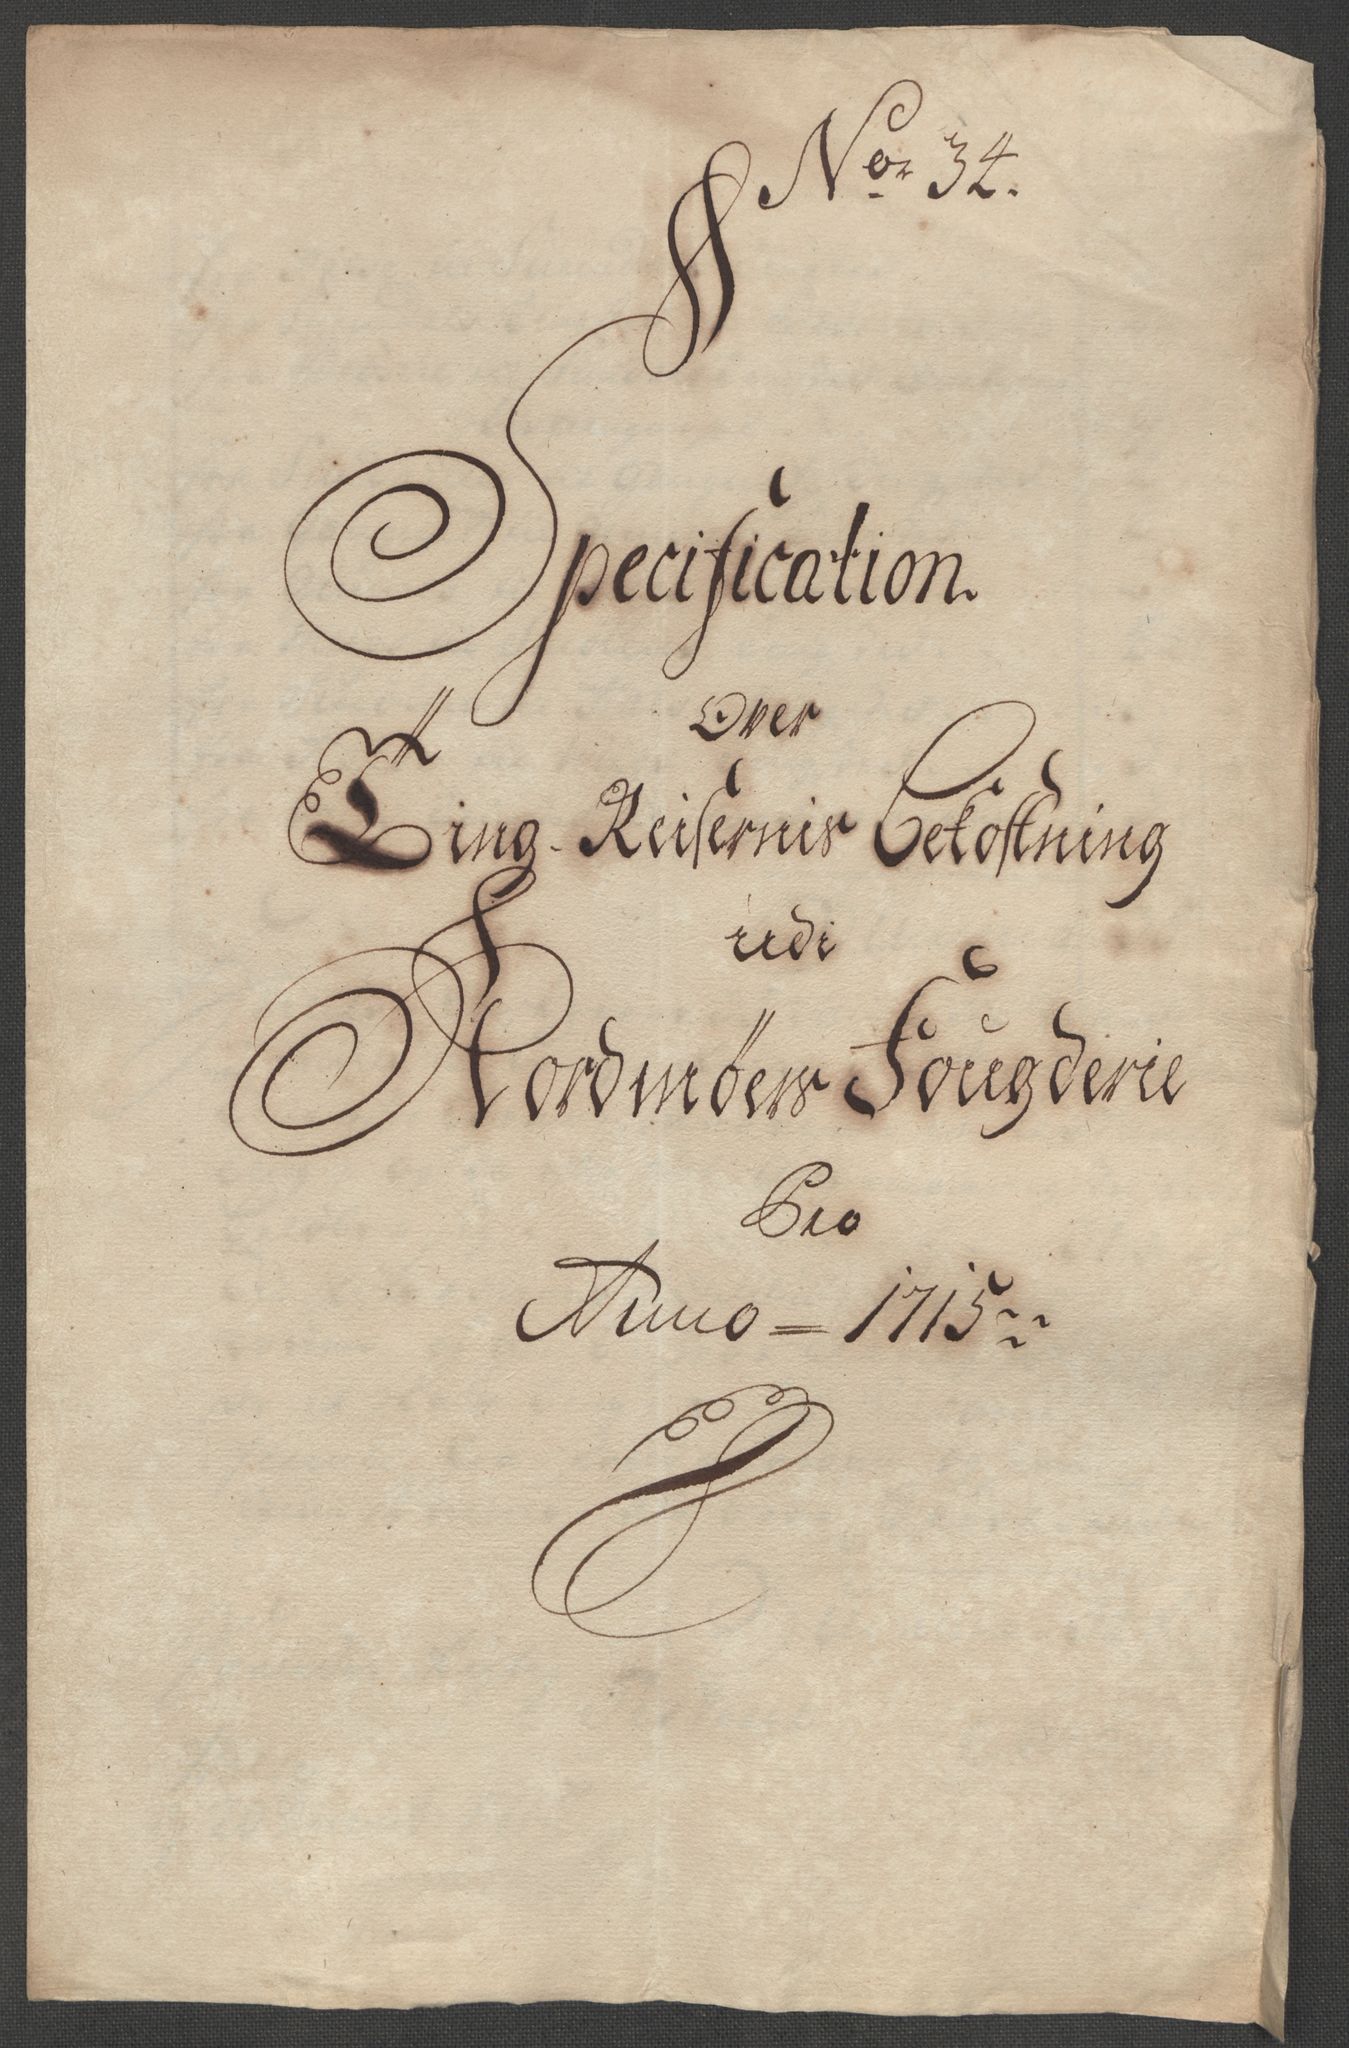 No 34.
Specification.
Over
Ting-Reisernis bekostning
udi
Nordmöers Fougderie
Pro
Anno = 1715